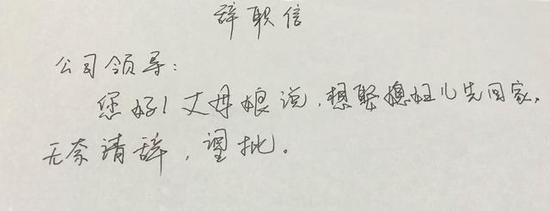 辞职信
公司领导：
您好！丈母娘说，想娶媳妇儿先回家，
无奈请辞，望批。